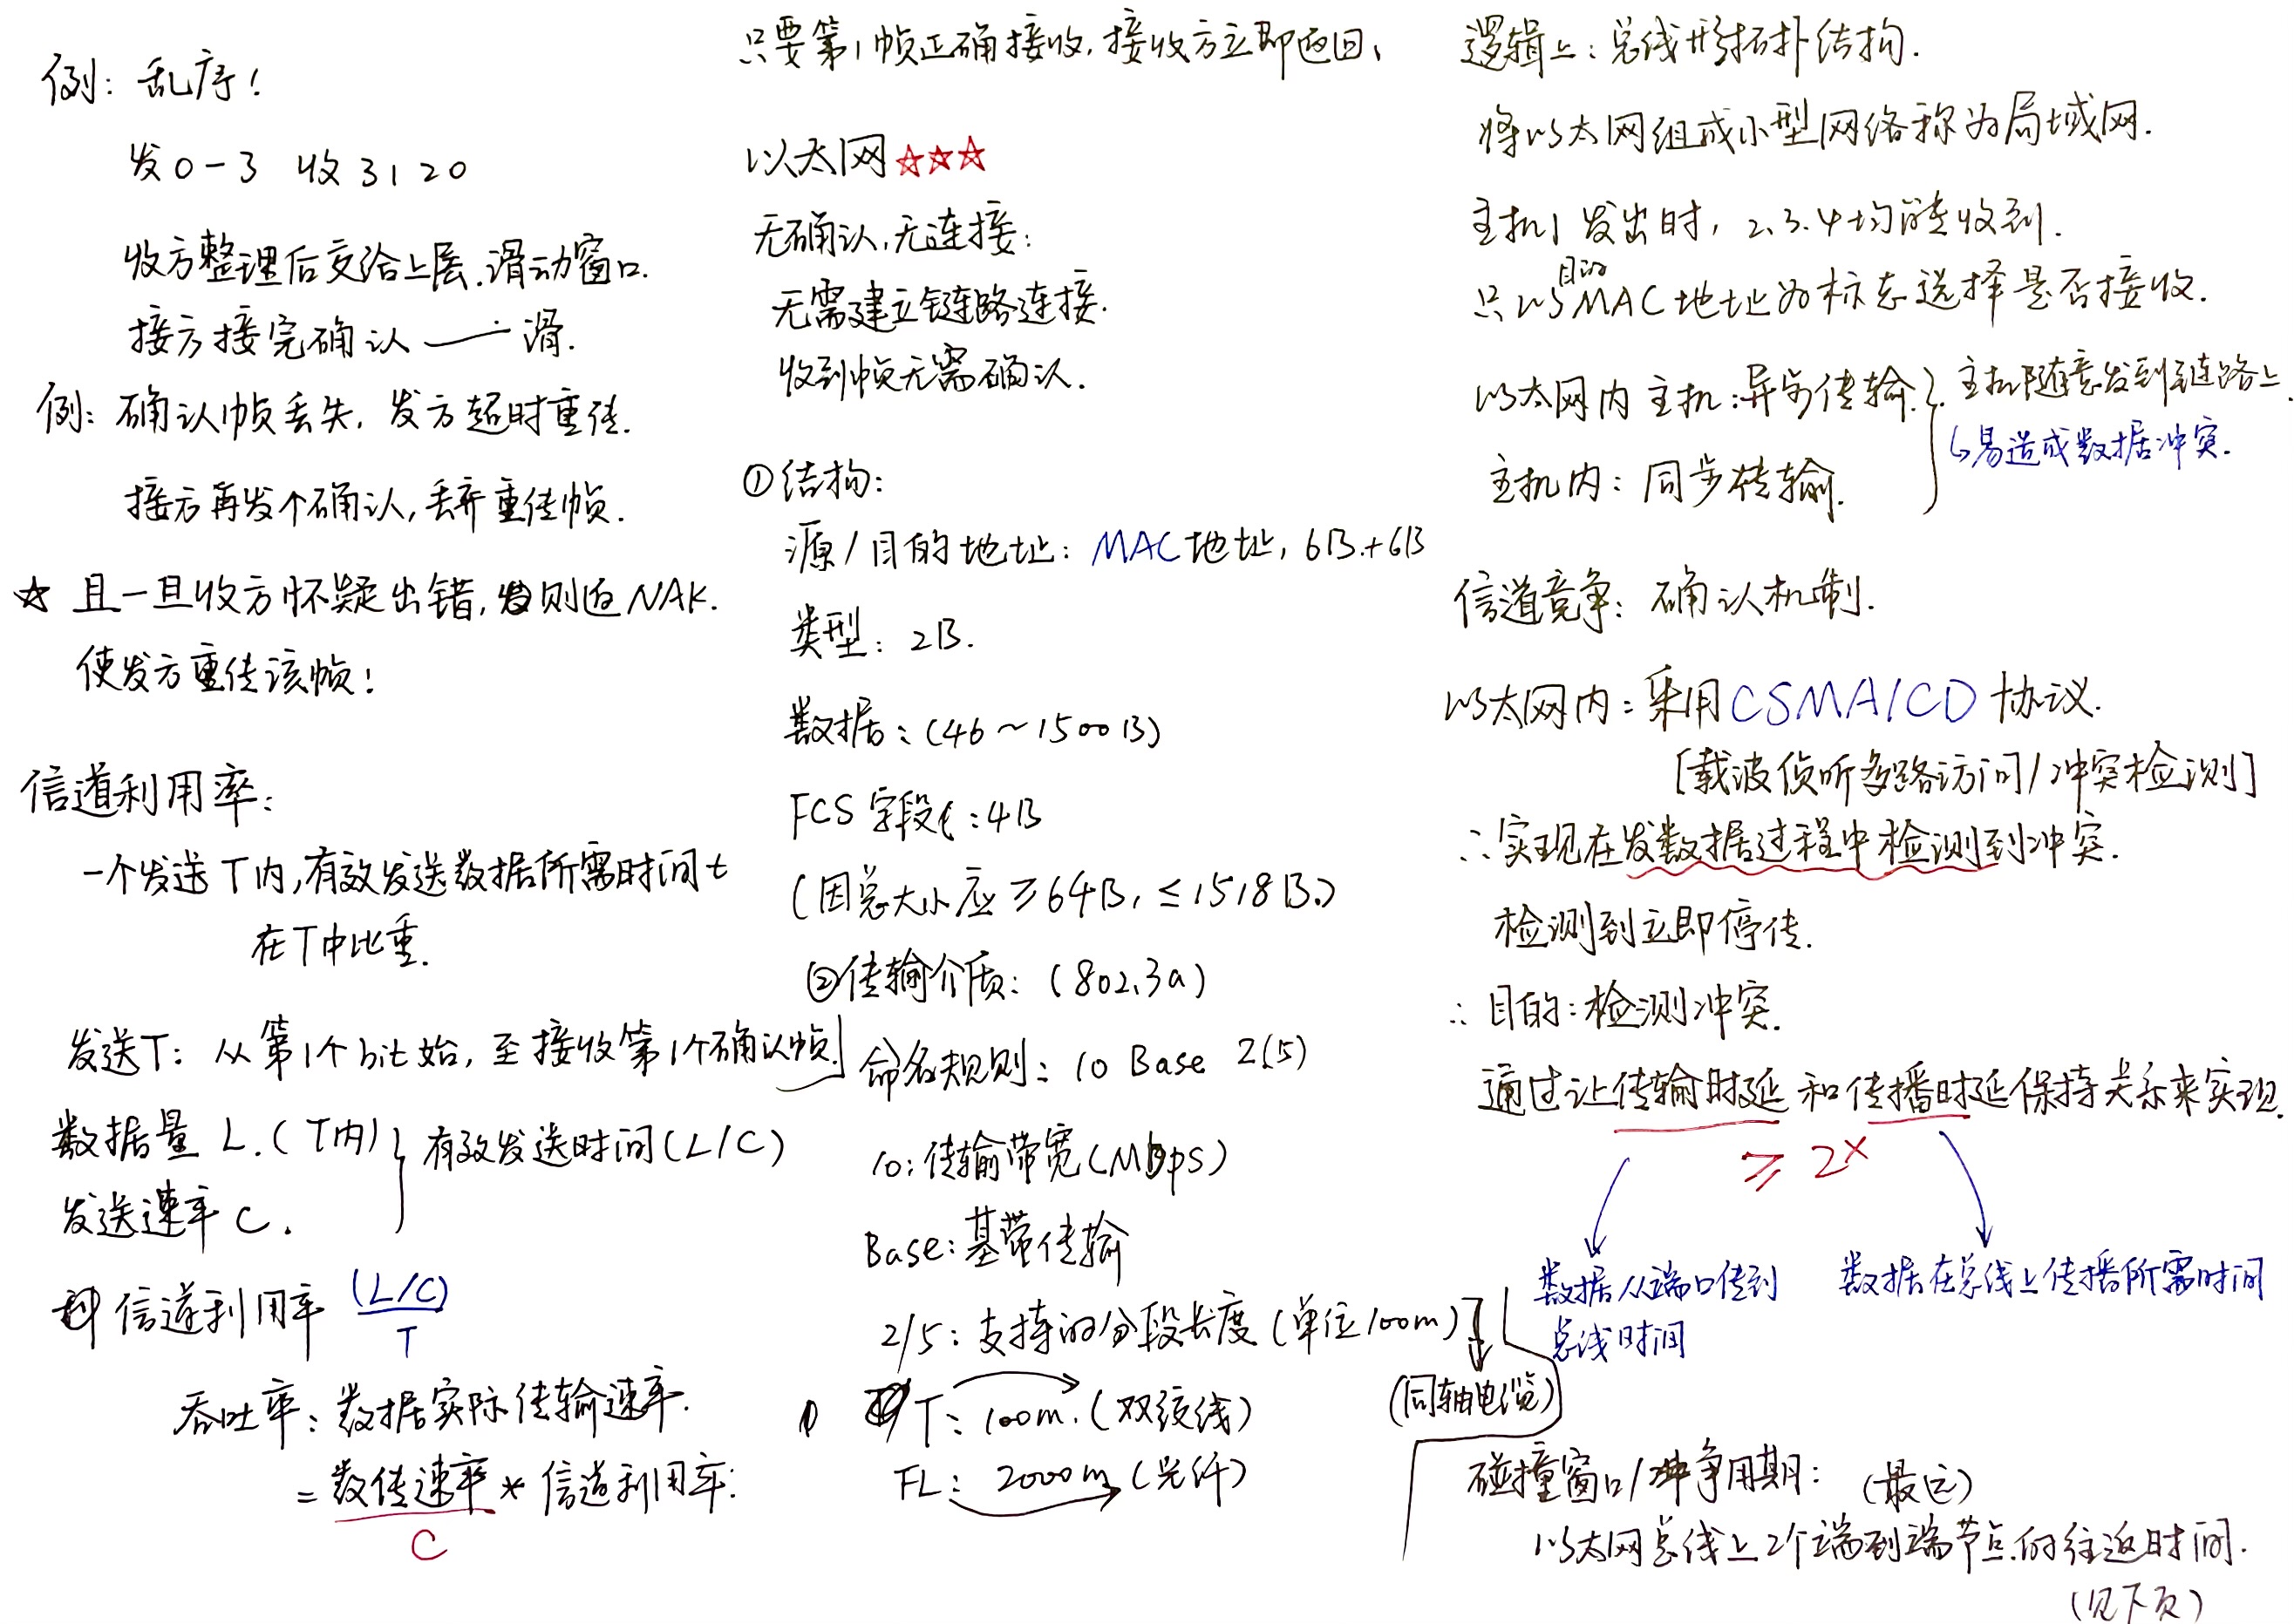 例: 乱序!
发0-3 收3120
收方整理后交给上层.滑动窗口.
接方接完确认——滑.
例: 确认帧丢失, 发方超时重传.
接方再发个确认, 丢弃重传帧.
☆ 且一旦收方怀疑出错, 则返NAK.
使发方重传该帧!
信道利用率:
一个发送T内,有效发送数据所需时间t
在T中比重.
发送T: 从第1个bit始, 至接收第1个确认帧.
数据量 L.(T内)
发送速率 C.
有效发送时间(L/C)
信道利用率 (L/C)
T
吞吐率: 数据实际传输速率.
= 数传速率 * 信道利用率.
C
只要第1帧正确接收, 接收方立即返回、
以太网☆☆☆
无确认,无连接:
无需建立链路连接.
收到帧无需确认.
①结构:
源/目的地址: MAC地址, 6B.+6B
类型: 2B.
数据: (46~1500B)
FCS字段: 4B
(因总大小应≥64B, ≤1518B.)
②传输介质: (802.3a)
命名规则: 10 Base 2(5)
10: 传输带宽(Mbps)
Base: 基带传输
2/5: 支持的分段长度(单位100m)
(同轴电缆)
T: 100m.(双绞线)
FL: 2000m(光纤)
逻辑上: 总线形拓扑结构.
将以太网组成小型网络称为局域网.
主机1发出时, 2.3.4均能收到.
目的
只以MAC地址为标志选择是否接收.
以太网内主机:异步传输.
主机内: 同步传输.
主机随意发到链路上.
↳易造成数据冲突.
信道竞争: 确认机制.
以太网内: 采用CSMA/CD协议.
[载波侦听多路访问/冲突检测]
∴实现在发数据过程中检测到冲突.
检测到立即停传.
∴目的:检测冲突.
通过让传输时延和传播时延保持关系来实现.
≥ 2×
数据从端口传到
总线时间
数据在总线上传播所需时间
碰撞窗口/争用期: (最远)
以太网总线上2个端到端节点的往返时间.
(见下页)